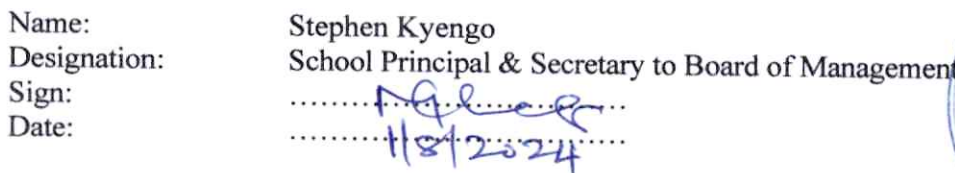 Name: Stephen Kyengo
Designation: School Principal & Secretary to Board of Management
Sign: ....................................................
Date: 1/8/2024